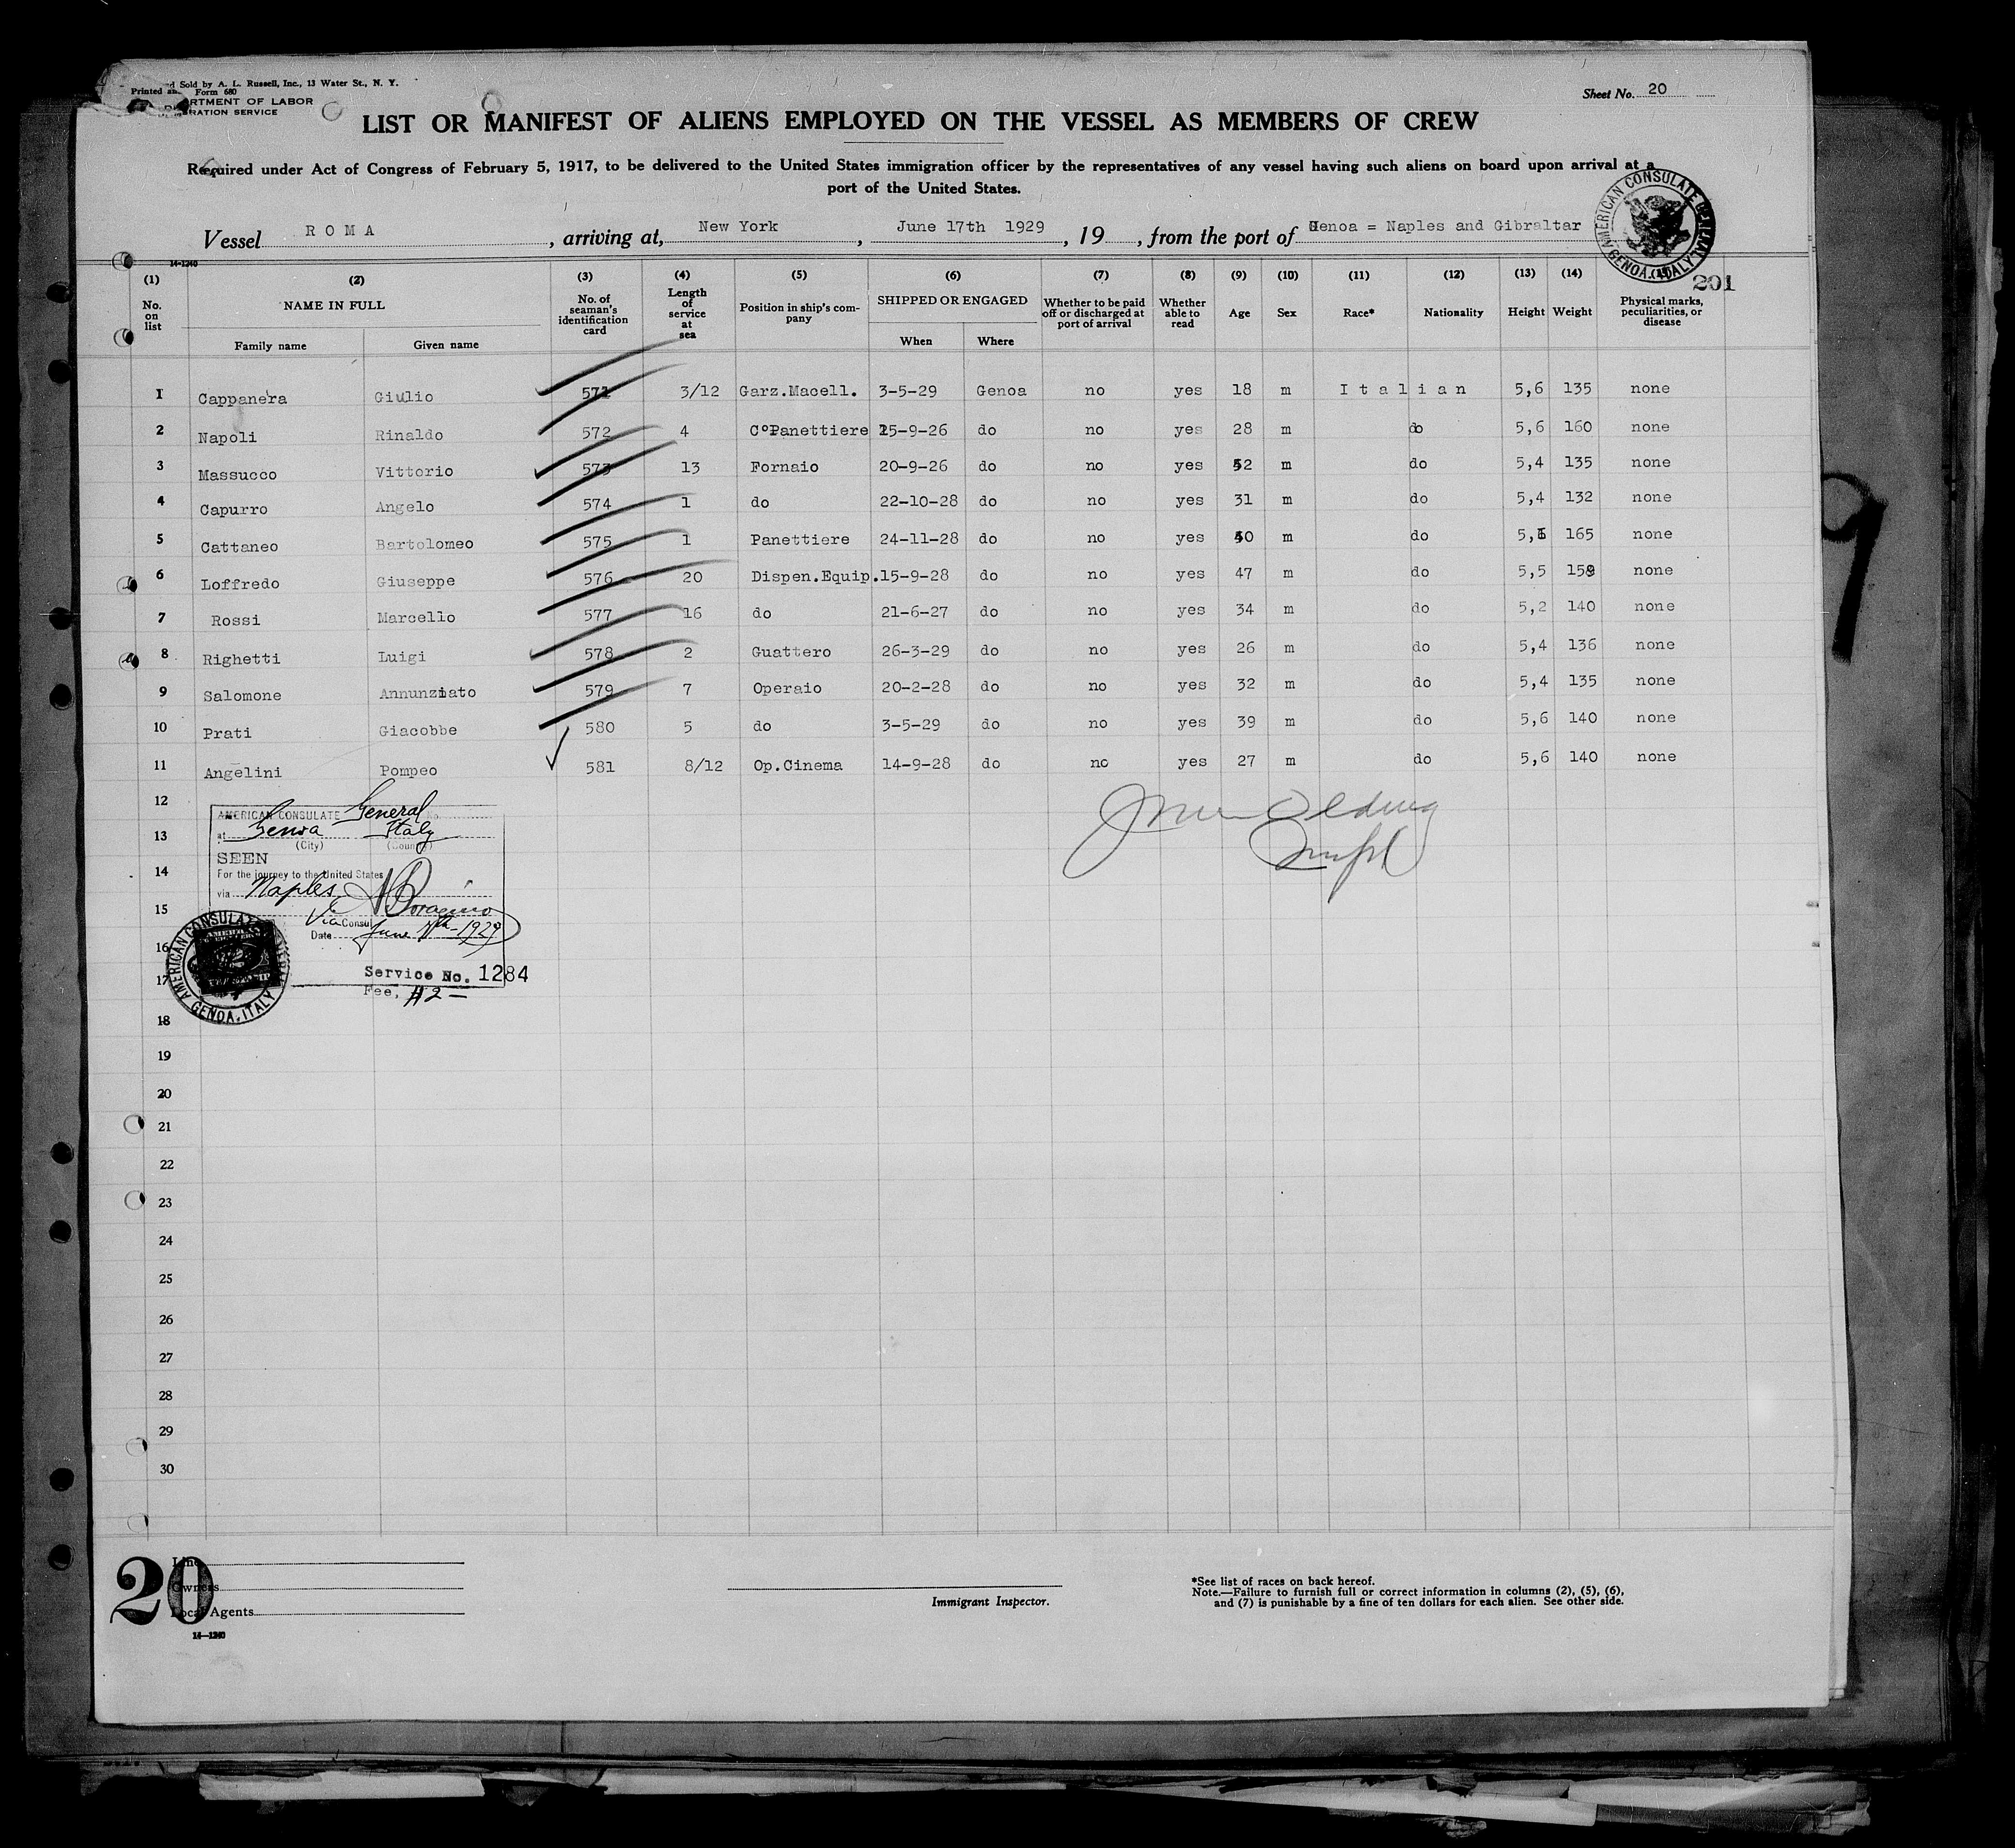 Sold by A. L. Russell, Inc., 13 Water St., N. Y.
Printed Form 680
RTMENT OF LABOR
RATION SERVICE
Sheet No. 20
LIST OR MANIFEST OF ALIENS EMPLOYED ON THE VESSEL AS MEMBERS OF CREW
Required under Act of Congress of February 5, 1917, to be delivered to the United States immigration officer by the representatives of any vessel having such aliens on board upon arrival at a
port of the United States.
Vessel R O M A , arriving at, New York , June 17th 1929 , 19 , from the port of Genoa = Naples and Gibraltar
AMERICAN CONSULATE GENERAL GENOA, ITALY
14-1240
201
(1) No. on list
(2) NAME IN FULL Family name Given name
(3) No. of seaman's identification card
(4) Length of service at sea
(5) Position in ship's company
(6) SHIPPED OR ENGAGED When Where
(7) Whether to be paid off or discharged at port of arrival
(8) Whether able to read
(9) Age
(10) Sex
(11) Race*
(12) Nationality
(13) Height
(14) Weight
Physical marks, peculiarities, or disease
1 Cappanera Giulio 571 3/12 Garz.Macell. 3-5-29 Genoa no yes 18 m I t a l i a n 5,6 135 none
2 Napoli Rinaldo 572 4 C°Panettiere 25-9-26 do no yes 28 m do 5,6 160 none
3 Massucco Vittorio 573 13 Fornaio 20-9-26 do no yes 52 m do 5,4 135 none
4 Capurro Angelo 574 1 do 22-10-28 do no yes 31 m do 5,4 132 none
5 Cattaneo Bartolomeo 575 1 Panettiere 24-11-28 do no yes 40 m do 5, 165 none
6 Loffredo Giuseppe 576 20 Dispen.Equip. 15-9-28 do no yes 47 m do 5,5 159 none
7 Rossi Marcello 577 16 do 21-6-27 do no yes 34 m do 5,2 140 none
8 Righetti Luigi 578 2 Guattero 26-3-29 do no yes 26 m do 5,4 136 none
9 Salomone Annunziato 579 7 Operaio 20-2-28 do no yes 32 m do 5,4 135 none
10 Prati Giacobbe 580 5 do 3-5-29 do no yes 39 m do 5,6 140 none
11 Angelini Pompeo 581 8/12 Op.Cinema 14-9-28 do no yes 27 m do 5,6 140 none
12
13
14
15
16
17
18
19
20
21
22
23
24
25
26
27
28
29
30
AMERICAN CONSULATE General No.
at Genoa Italy
(City) (Country)
SEEN
For the journey to the United States
via Naples
Vice Consul
Date June 1929
Service No. 1284
Fee, $2-
AMERICAN CONSULATE GENERAL GENOA, ITALY
20
Line
Owners
Local Agents
14-1240
Immigrant Inspector.
*See list of races on back hereof.
Note.—Failure to furnish full or correct information in columns (2), (5), (6),
and (7) is punishable by a fine of ten dollars for each alien. See other side.
9